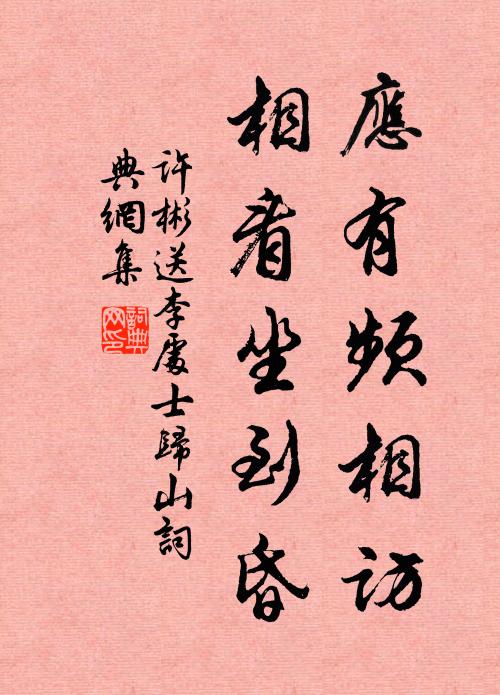 應有頻相訪
相看坐到昏
許彬送李處士歸山詞
典網集
詞典网印